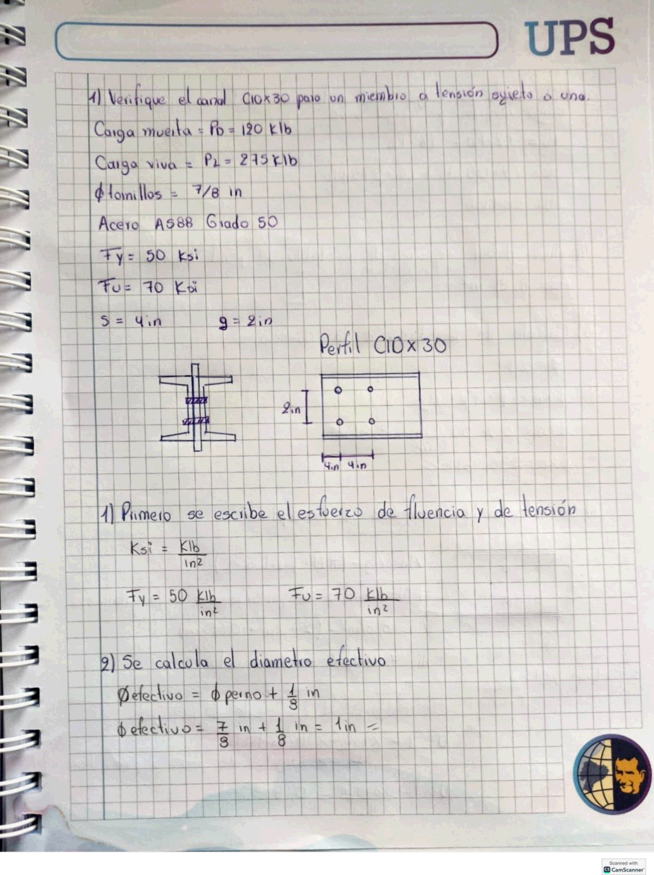 UPS
1) Verifique el canal C10x30 para un miembro a tensión sujeto a una.
Carga muerta = PD = 120 Klb
Carga viva = PL = 275 Klb
ϕ tornillos = 7/8 in
Acero A588 Grado 50
Fy = 50 Ksi
Fu = 70 Ksi
s = 4in g = 2in
Perfil C10 x 30
2in
4in 4in
1) Primero se escribe el esfuerzo de fluencia y de tensión
Ksi = Klb/in²
Fy = 50 Klb/in² Fu = 70 Klb/in²
2) Se calcula el diametro efectivo
ϕefectivo = ϕ perno + 1/8 in
ϕ efectivo = 7/8 in + 1/8 in = 1in =
Scanned with
CS CamScanner